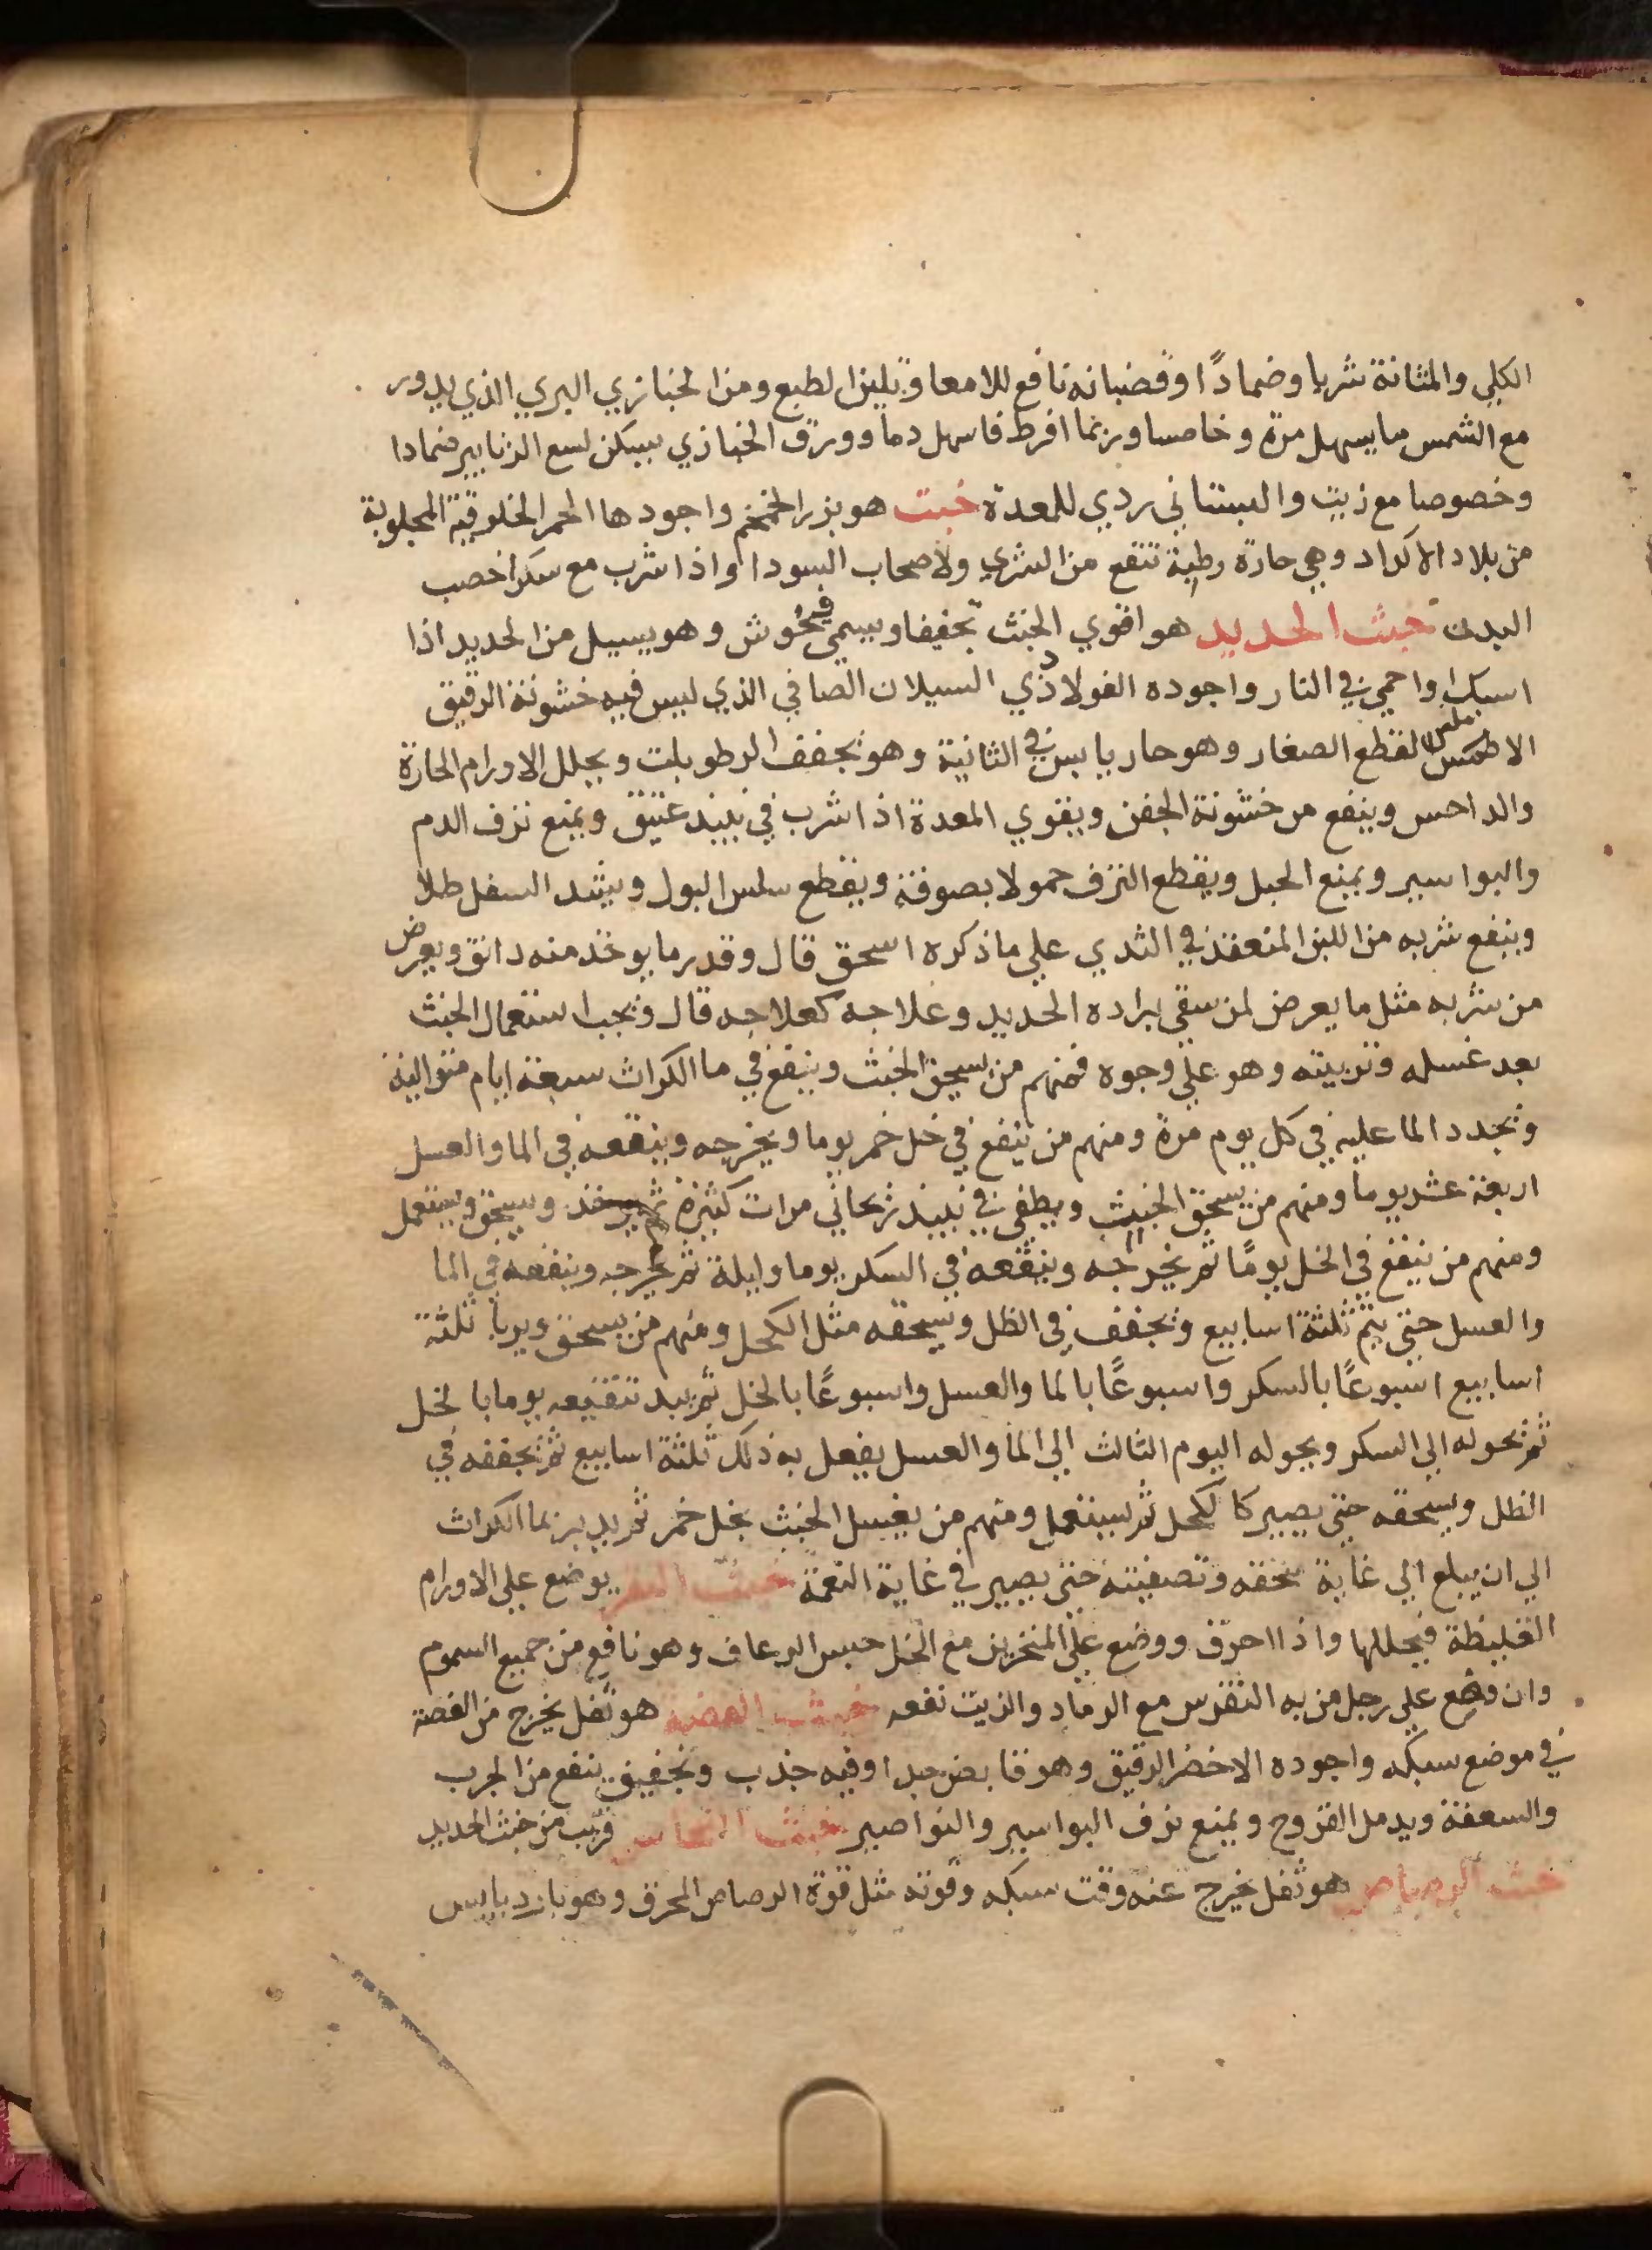 الكلي والمثانة شربا وضمادًا وقضبانه نافع للامعا ويلين الطبع ومن الخبازي البري الذي يدور
مع الشمس ما يسهل مرة وخاما وربما افرط فاسهل دما وورق الخبازي يسكن لسع الزنابير ضمادا
وخصوصا مع زيت والبستاني ردي للمعدة خبت هو بزر الخمخم واجودها الحمر الخلوقية المجلوبة
من بلاد الاكراد وهي حارة رطبة تنفع من الشري ولاصحاب السودا واذا شرب مع سكر اخصب
البدن خبث الحديد هو اقوي الخبث تجفيفا ويسمي وهو يسيل من الحديد اذا
اسبك واحمي في النار واجوده الفولادي السيلان الصافي الذي ليس فيه خشونة الرقيق
الاملس القطع الصغار وهو حار يابس في الثانية وهو يجفف الرطوبات ويحلل الاورام الحارة
والداحس وينفع من خشونة الجفن ويقوي المعدة اذا شرب في نبيذ عتيق ويمنع نزف الدم
والبواسير ويمنع الحبل ويقطع النزف حمولا بصوفة ويقطع سلس البول ويشد السفل طلا
وينفع شربه من اللبن المنعقد في الثدي علي ما ذكره اسحق قال وقدر ما يوخذ منه دانق ويعرض
من شربه مثل ما يعرض لمن سقي براده الحديد وعلاجه كعلاجه قال ويجب استعمال الخبث
بعد غسله وتربيته وهو علي وجوه فمنهم من يسحق الخبث وينقع في ما الكراث سبعة ايام متوالية
ويجدد الما عليه في كل يوم مرة ومنهم من ينقع في خل خمر يوما ويخرجه وينقعه في الما والعسل
اربعة عشر يوما ومنهم من يسحق الخبث ويطفي في نبيذ ريحاني مرات كثيرة ثم يوخذ ويسحق ويستعمل
ومنهم من ينقع في الخل يومًا ثم يخرجه وينقعه في السكر يوما وليلة ثم يخرجه وينقعه في الما
والعسل حتي يتم ثلثة اسابيع ويجفف في الظل ويسحقه مثل الكحل ومنهم من يسحق ويربا ثلثة
اسابيع اسبوعًا بالسكر واسبوعًا بالما والعسل واسبوعًا بالخل ثم يبد تنقيعه يوما بالخل
ثم يحوله الي السكر ويحوله اليوم الثالث الي الما والعسل يفعل به ذلك ثلثة اسابيع ثم يجففه في
الظل ويسحقه حتي يصير كالكحل ثم يستعمل ومنهم من يغسل الخبث بخل خمر ثم يدبر بما الكراث
الي ان يبلغ الي غاية سحقه وتصفيته حتي يصير في غاية النعمة خبث يوضع علي الاورام
الغليظة فيحللها واذا احرق ووضع علي المنخرين مع الخل حبس الرعاف وهو نافع من جميع السموم
وان وضع علي رجل من به النقرس مع الرماد والزيت نفعه خبث الفضة هو ثفل يخرج من الفضة
في موضع سبكه واجوده الاخضر الرقيق وهو قابض جدا وفيه جذب وتجفيف ينفع من الجرب
والسعفة ويدمل القروح ويمنع نزف البواسير والنواصير خبث النحاس قريب من خبث الحديد
خبث الرصاص هو ثفل يخرج عنه وقت سبكه وقوته مثل قوة الرصاص المحرق وهو بارد يابس